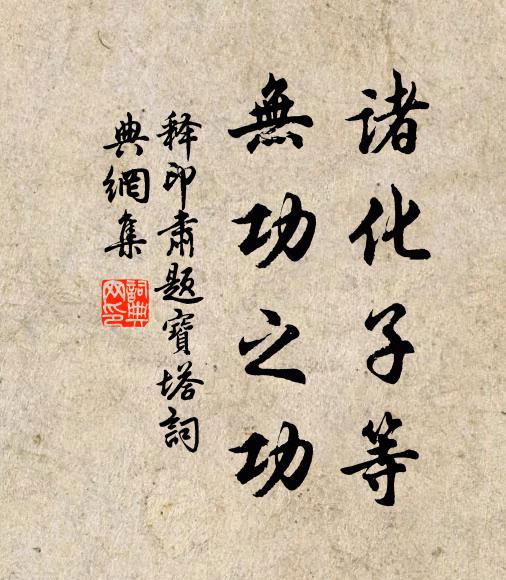 諸化子等
無功之功
释印肃题寶塔詞
典網集
詞典網印